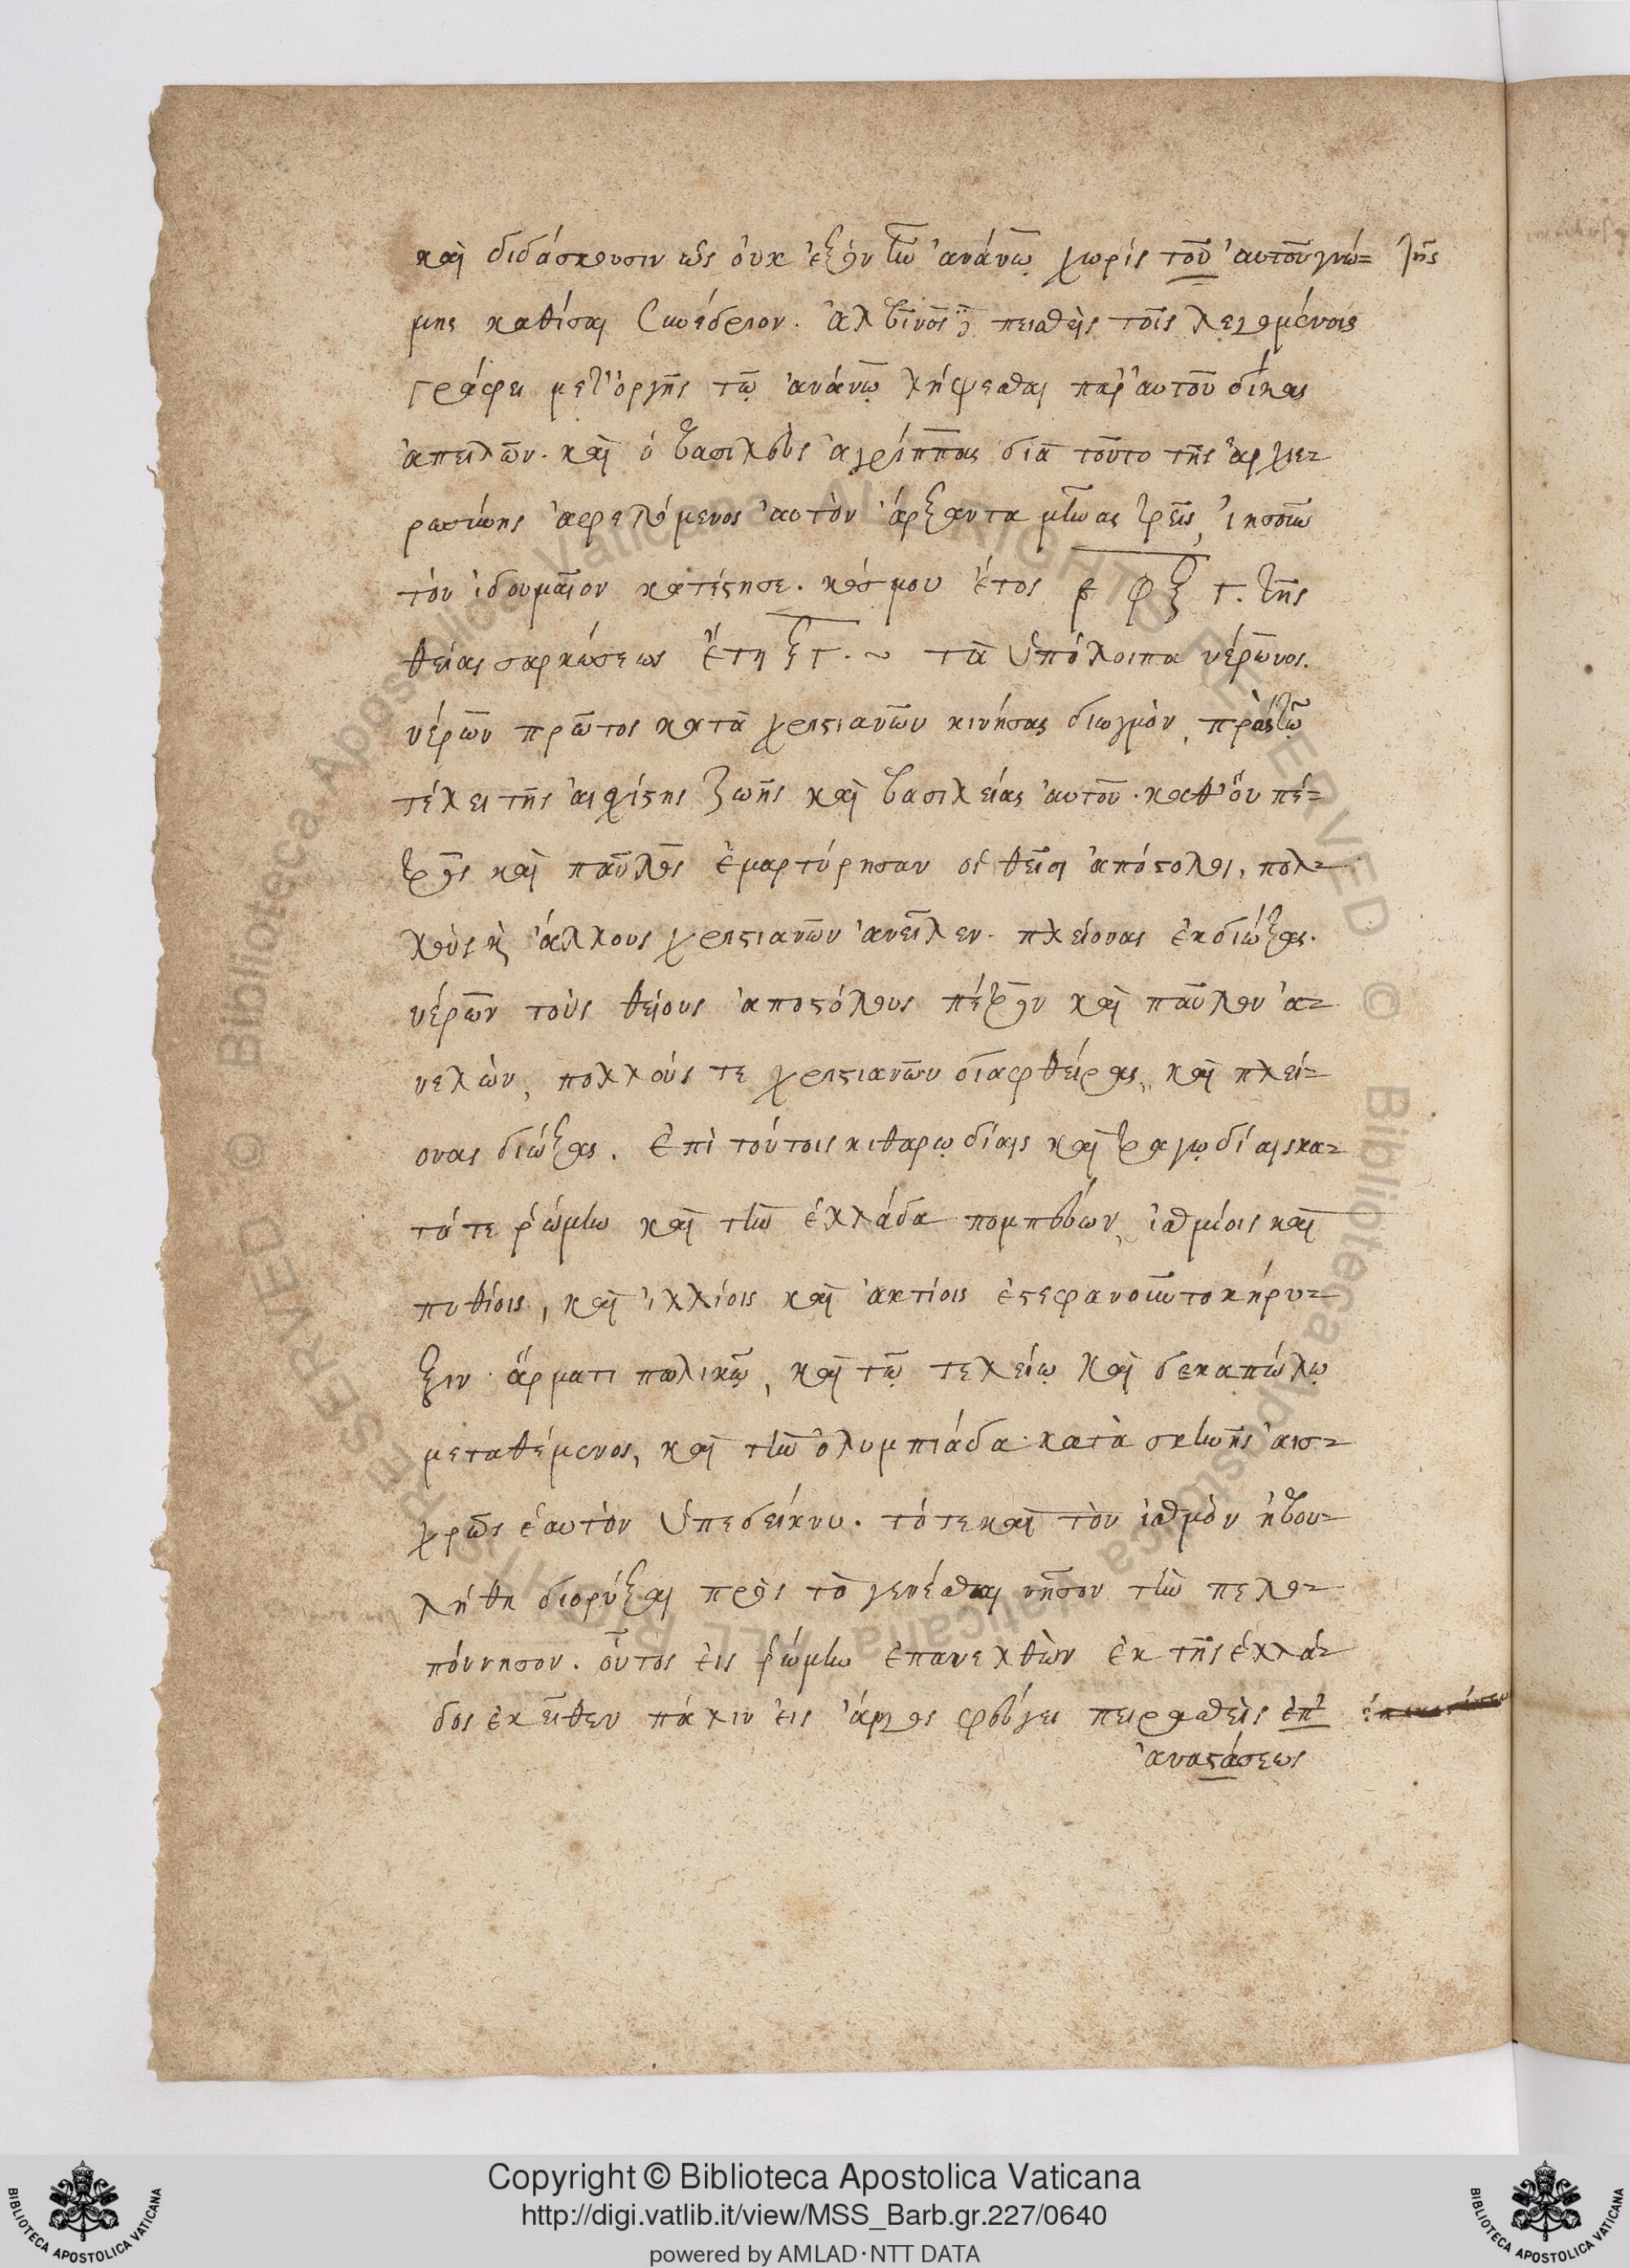 καὶ διδάσκουσιν ὡς ὀυκ ἐξὸν ἦν ἀνάνῳ χωρὶς τοῦ ἀυτοῦ γνώ= τῆς
μης καθίσαι συνέδριον. ἀλβῖνος δὲ πεισθεὶς τοῖς λεγομένοις
γράφει μετ' ὀργῆς τῷ ἀνάνῳ λήψεσθαι παρ' ἀυτοῦ δίκας
ἀπειλῶν. καὶ ὁ βασιλεὺς ἀγρίππας διὰ τοῦτο τῆς ἀρχιε=
ρωσύνης ἀφελόμενος ἀυτὸν ἄρξαντα μῆνας τρεῖς, ἰησοῦν
τὸν ἰδουμαῖον κατέστησε. κόσμου ἔτος ͵εφξγ. τῆς
θείας σαρκώσεως ἔτη ξγ. ~ τὰ ὑπόλοιπα νέρωνος.
νέρων πρῶτος κατὰ χριστιανῶν κινήσας διωγμὸν, πρὸς τῷ
τέλει τῆς ἀισχίστης ζωῆς καὶ βασιλείας ἀυτοῦ. καθ' ὃν πέ=
τρος καὶ παῦλος ἐμαρτύρησαν οἱ θεῖοι ἀπόστολοι, πολ=
λοὺς κ̀ ἄλλους χριστιανῶν ἀνεῖλεν. πλείονας ἐκδιώξας.
νέρων τοὺς θείους ἀποστόλους πέτρον καὶ παῦλον ἀ=
νελὼν, πολλούς τε χριστιανῶν διαφθείρας, καὶ πλεί=
ονας διώξας. ἐπὶ τούτοις κιθαρῳδίαις καὶ τραγῳδίαις κα=
τά τε ῥώμην καὶ τὴν ἑλλάδα πομπεύων, ἰσθμίοις καὶ
πυθίοις, καὶ ἰλλίοις καὶ ἀκτίοις ἐστεφανοῦντο κήρυ=
ξιν. ἅρματι πωλικῷ, καὶ τῷ τελείῳ καὶ δεκαπώλῳ
μεταθέμενος, καὶ τὴν ὀλυμπιάδα. κατὰ σκηνῆς ἀισ=
χρῶς ἑαυτὸν ὑπεδείκνυ. τότε καὶ τὸν ἰσθμὸν ἠβου=
λήθη διορύξαι πρὸς τὸ γενέσθαι νῆσον τὴν πελο=
πόννησον. οὗτος ἐις ῥώμην ἐπανελθὼν ἐκ τῆς ἑλλά=
δος ἐκεῖθεν πάλιν ἐις ἄργος φεύγει πειραθεὶς ἐπ'
ἀναστάσεως
Copyright © Biblioteca Apostolica Vaticana
http://digi.vatlib.it/view/MSS_Barb.gr.227/0640
powered by AMLAD·NTT DATA